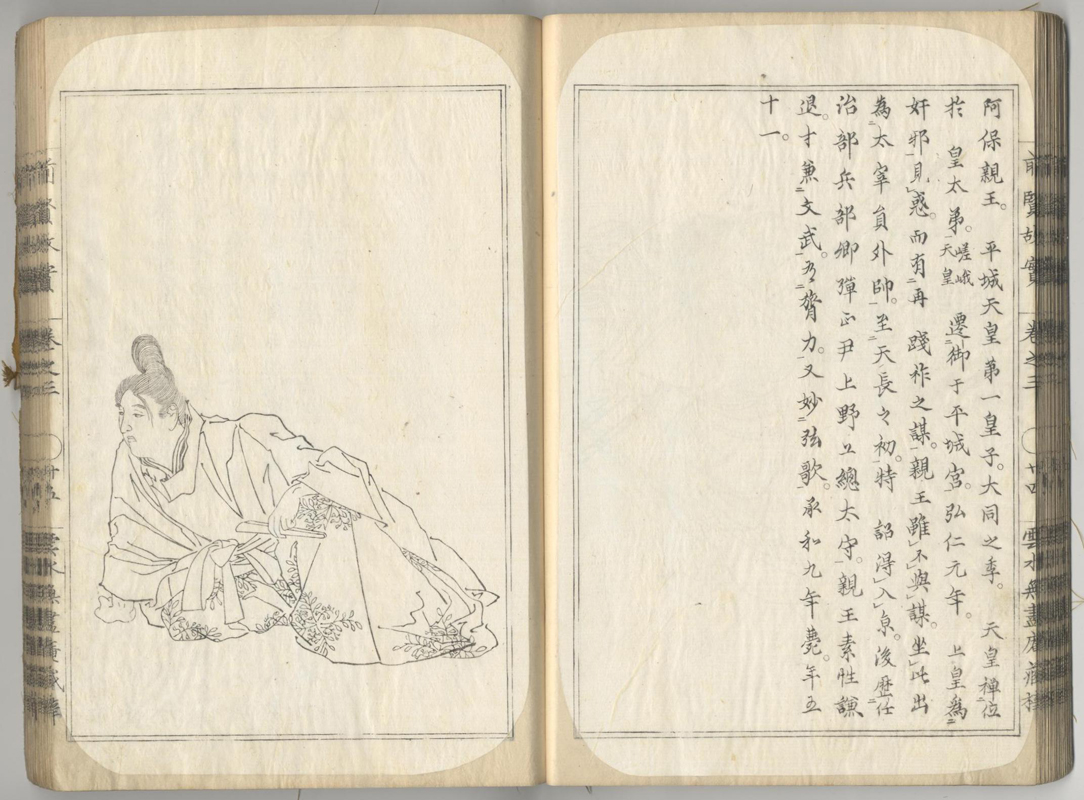 阿保親王。平城天皇第一皇子。大同之季。天皇禅位
於皇太弟。嵯峨天皇遷御于平城宮。弘仁元年。上皇為
奸邪見惑。而有再踐祚之謀。親王雖不與謀。坐此出
為太宰員外帥。至天長之初。特詔得入京。後歴任
治部兵部卿弾正尹上野上總太守。親王素性謙
退。才兼文武。有膂力。又妙弦歌。承和九年薨。年五
十一。
前賢故實 卷之三 廿四 雲水無盡庵藏
卷之三 廿五